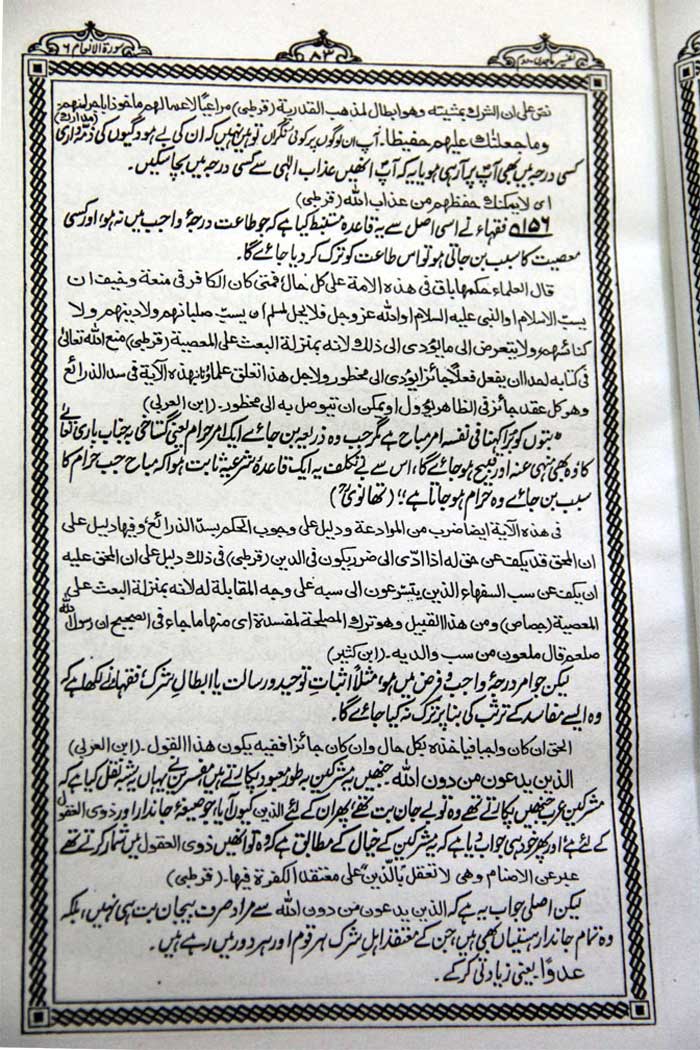 تفسیر ماجدی - دوم
۸۳
سورۃ الانعام ۶
نص علی ان الشرك بمشیته وهو ابطال لمذهب القدریة (قرطبی) مراعیًا لاعمالهم ماخوذا باجرامهم (مدارك)
وما جعلنٰك علیهم حفیظا۔ آپؐ ان لوگوں پر کوئی نگراں تو ہیں نہیں کہ ان کی بے ہودگیوں کی ذمہ داری
کسی درجہ میں بھی آپؐ پر آ رہی ہو یا یہ کہ آپؐ انھیں عذاب الٰہی سے کسی درجہ میں بچا سکیں۔
ای لا یمكنك حفظهم من عذاب الله (قرطبی)
۱۵۶ فقہاء نے اسی اصل سے یہ قاعدہ مستنبط کیا ہے کہ جو طاعت درجۂ واجب میں نہ ہو، اور کسی
معصیت کا سبب بن جاتی ہو تو اس طاعت کو ترک کر دیا جائے گا۔
قال العلماء حكمها باق فی هذه الامة علی كل حال فمتی كان الكافر فی منعة وخیف ان
یسبّ الاسلام او النبی علیه السلام او الله عز وجل فلا یحل لمسلم ان یسبّ صلبانهم ولا دینهم ولا
كنائسهم ولا یتعرض الی ما یؤدی الی ذلك لانه بمنزلة البعث علی المعصیة (قرطبی) منع الله تعالیٰ
فی كتابه احدا ان یفعل فعلًا جائزا یؤدی الی محظور ولاجل هذا تعلق علماؤنا بهذه الآیة فی سد الذرائع
وهو كل عقد جائز فی الظاهر یؤول او یمكن ان یتوصل به الی محظور۔ (ابن العربی)
"بتوں کو بُرا کہنا فی نفسہ امر مباح ہے مگر جب وہ ذریعہ بن جائے ایک امر حرام یعنی گستاخی بہ جناب باری تعالےٰ
کا وہ بھی منہی عنہ اور قبیح ہو جائے گا، اس سے بے تکلف یہ ایک قاعدۂ شرعیہ ثابت ہوا کہ مباح جب حرام کا
سبب بن جائے وہ حرام ہو جاتا ہے" (تھانویؒ)
فی هذه الآیة ایضا ضرب من الموادعة ودلیل علی وجوب الحكم بسدّ الذرائع، وفیها دلیل علی
ان المحق قد یكف عن حق له اذا ادّی الی ضرر یكون فی الدین (قرطبی) فی ذلك دلیل علی ان المحق علیه
ان یكف عن سب السفهاء الذین یتسرعون الی سبه علی وجه المقابلة له لانه بمنزلة البعث علی
المعصیة (جصاص) ومن هذا القبیل وهو ترك المصلحة لمفسدة ای منها ما جاء فی الصحیح ان رسول الله
صلعم قال ملعون من سب والدیه۔ (ابن كثیر)
لیکن جو امر درجۂ واجب و فرض میں ہو، مثلاً اثباتِ توحید و رسالت یا ابطالِ شرک، فقہا نے لکھا ہے کہ
وہ ایسے مفاسد کے ترتب کی بنا پر ترک نہ کیا جائے گا۔
الحق ان كان واجبا فیاخذه بكل حال وان كان جائزا ففیه یكون هذا القول۔ (ابن العربی)
الذین یدعون من دون الله جنھیں یہ مشرکین بہ طور معبود پکارتے ہیں مفسرین نے یہاں یہ شبہ نقل کیا ہے کہ
مشرکین عرب جنھیں پکارتے تھے وہ تو بے جان بت تھے پھر ان کے لئے الذین کیوں آیا، جو صیغۂ جاندار اور ذوی العقول
کے لئے ہے؟ اور پھر خود ہی جواب دیا ہے کہ یہ مشرکین کے خیال کے مطابق ہے کہ وہ تو انھیں ذوی العقول میں شمار کرتے تھے
عبر عن الاصنام وهی لا تعقل بالّذین علی معتقد الكفرة فیها۔ (قرطبی)
لیکن اصلی جواب یہ ہے کہ الذین یدعون من دون الله سے مراد صرف بیجان بت ہی نہیں، بلکہ
وہ تمام جاندار ہستیاں بھی ہیں، جن کے معتقد اہل شرک ہر قوم اور ہر دور میں رہے ہیں۔
عدوًا یعنی زیادتی کرکے۔